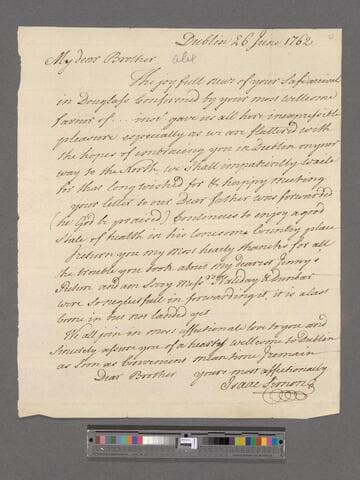 Dublin 26 June 1762
My dear Brother
The joyfull news of your safe arrival
in Douglass Confirmed by your most wellcome
favour of ... inst. gave us all here inexpressible
pleasure especially as we are flattered with
the hopes of embracing you in Dublin on your
way to the North we shall impatiently waite
for that long wished for & happy meeting
your letter to our Dear father was forwarded
he (God be praised) Continues to enjoy a good
State of health in his lonesome Country place
I return you my most hearty thanks for all
the trouble you took about my dearest Jenny's
Picture and am sorry Messrs. Haliday & Dunbar
were so neglectfull in forwarding it, it is a last
Come in but not landed yet
We all join in most affectionate love to you and
Sincerely assure you of a hearty wellcome to Dublin
as soon as Convenient mean time I remain
Dear Brother yours most affectionately
Isaac Simon